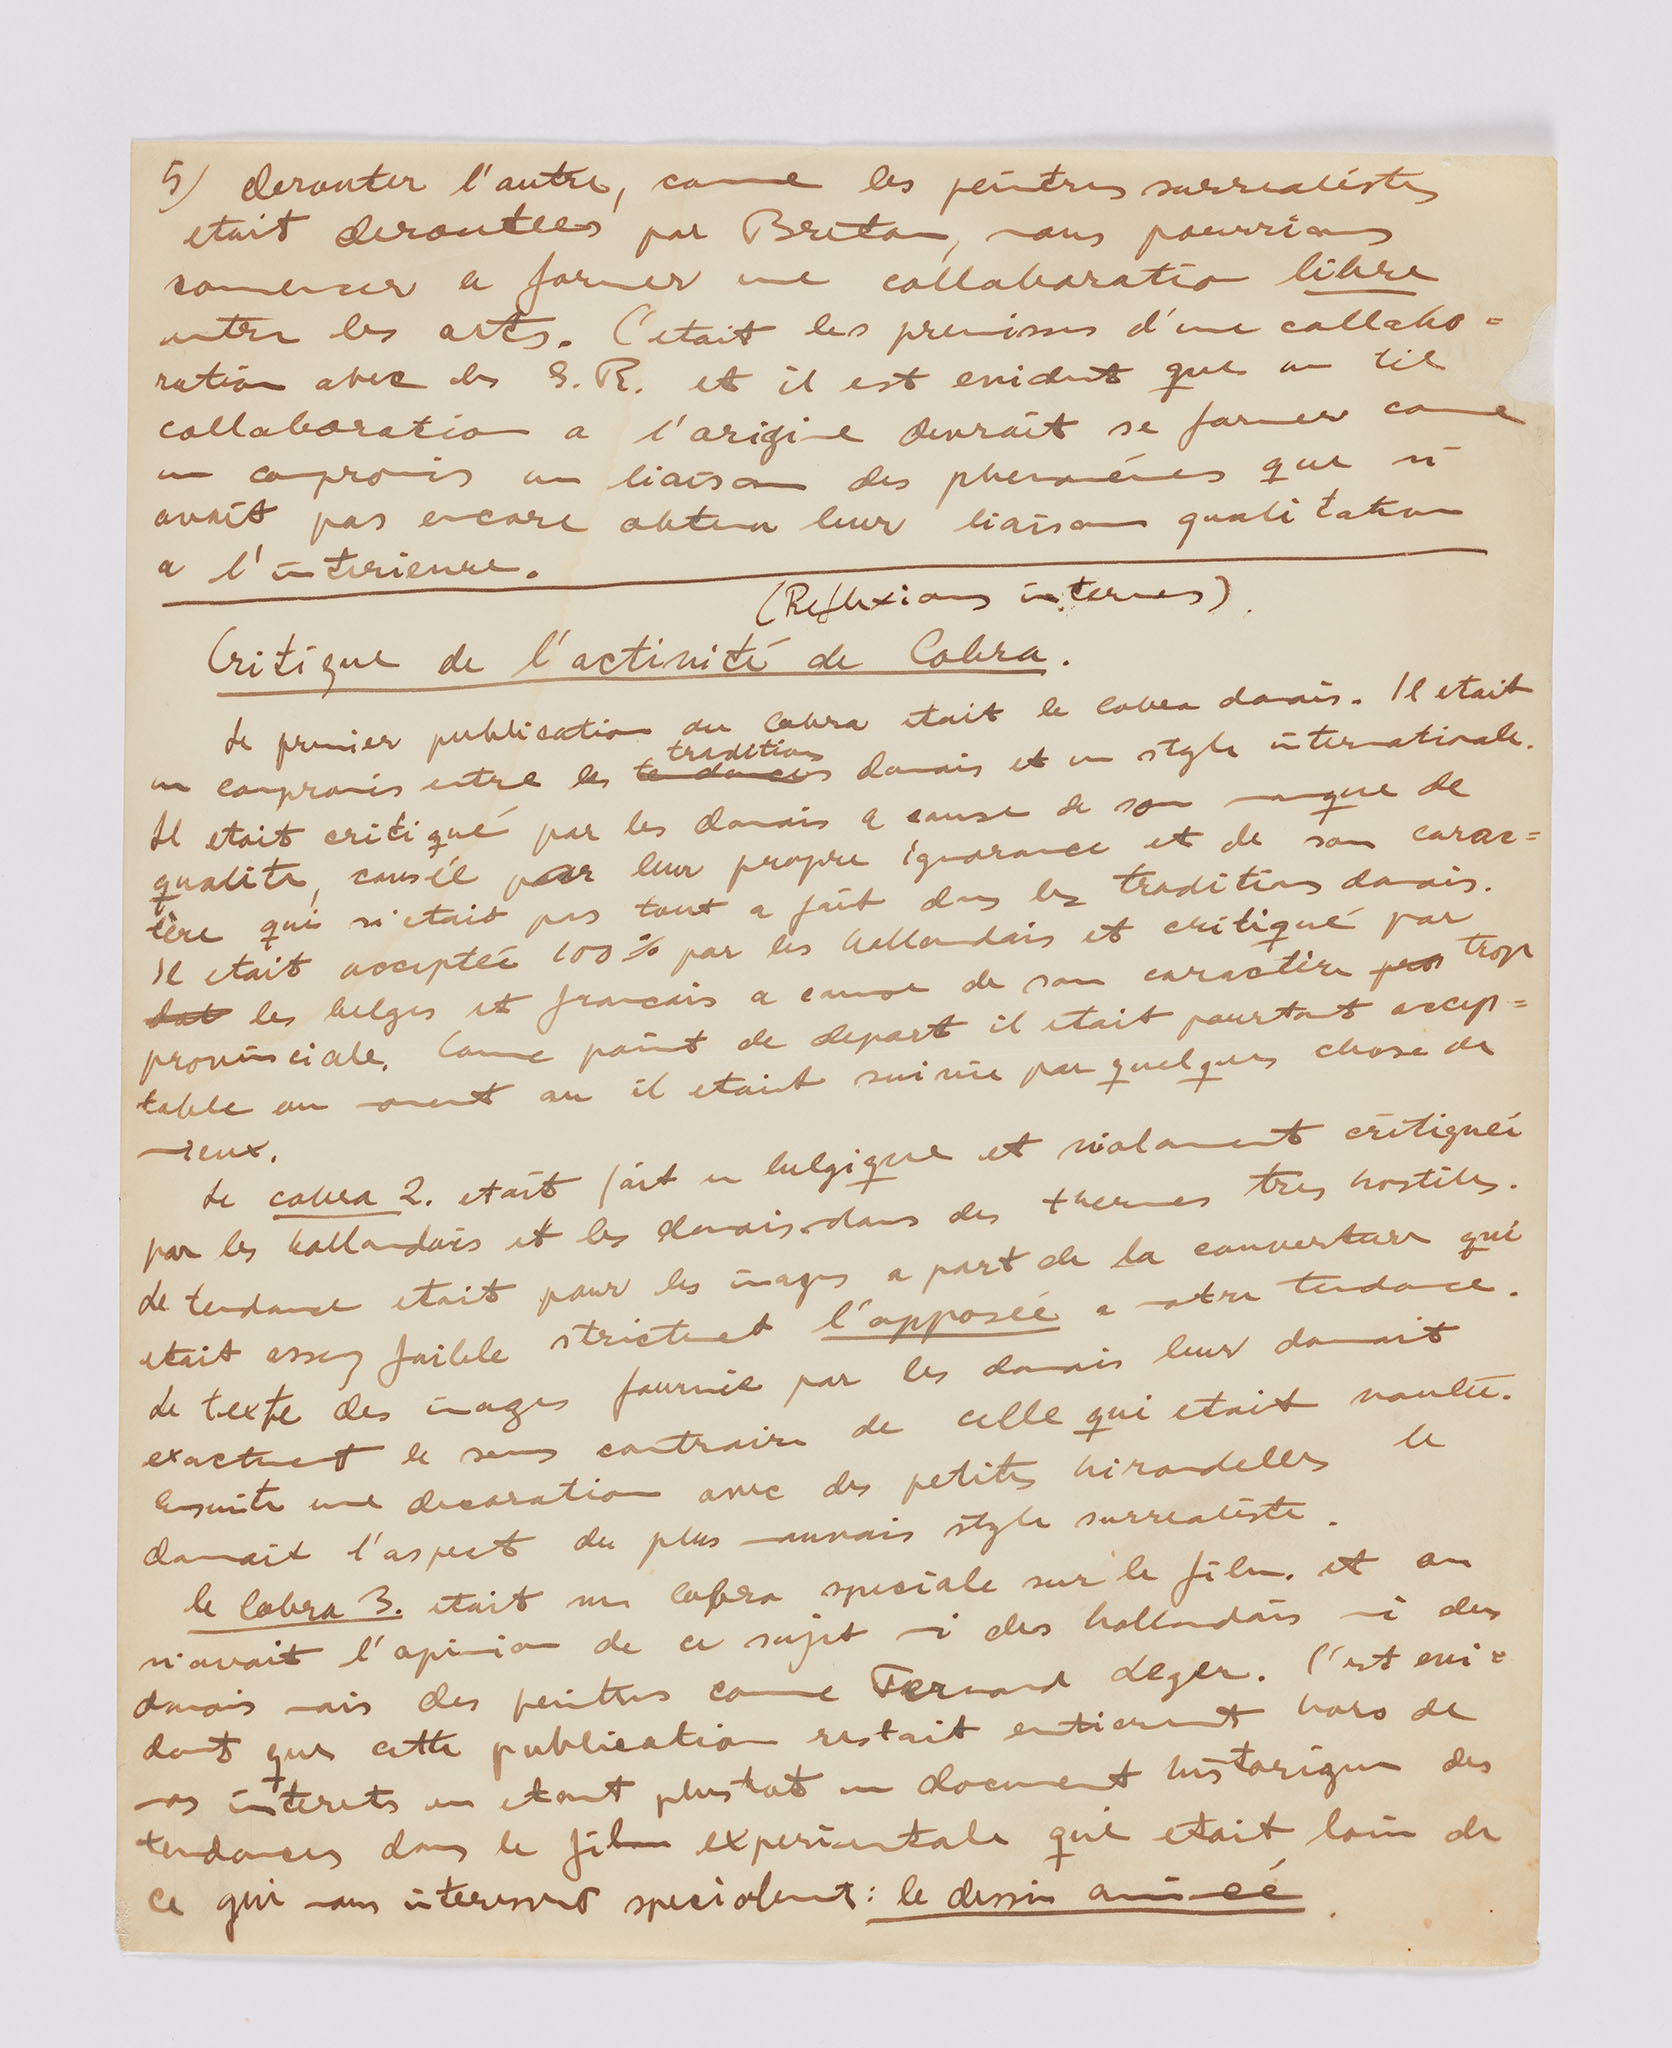 5) derouter l'autre, come les peintres surrealistes
etait deroutees par Breton, nous pourrions
comencer a former une collaboration libre
entre les arts. C'etait les premisses d'une collabo=
ration avec les S.R. et il est evident que un tel
collaboration a l'origine devrait se former come
un compromis un liaison des phenoménes que n'
avait pas encore obtenu leur liaison qualitation
a l'interieure.
(Reflexions internes).
Critique de l'activité de Cobra.
Le premier publication du Cobra etait le cobra danois. Il etait
un compromis entre les tendances tradition danois et un style internationale.
Il etait critiqué par les danois a cause de son manque de
qualite, causéé par leur propre ignorance et de son carac=
tère qui n'etait pas tout a fait dans les traditions danois.
Il etait acceptée 100% par les hollandais et critiqué par
les belges et francais a cause de son caractère pas trop
provinsciale. Come point de depart il etait pourtant accep=
table au moment ou il etait suivie par quelques chose de
mieux.
Le cobra 2. etait fait en belgique et violament critiquéé
par les hollandais et les danois dans des thermes tres hostiles.
de tendance etait pour les images a part de la couverture qui
etait assez faible strictment l'opposéé a notre tendance.
Le texte des images fournie par les danois leur donnait
exactment le sens contraire de celle qui etait voulue.
Ensuite une decoration avec des petites hirondelles le
donnait l'aspect du plus mauvais style surrealiste.
le Cobra 3. etait un Cobra speciale sur le film. et on
n'avait l'opinion de ce sujet ni des hollandais ni des
danois mais des peintres come Fernand Leger. C'est evi=
dant que cette publication restait entierment hors de
nos interets en etant plustot un document historique des
tendances dans le film experimentale qui etait loin de
ce qui nous interessent specialment: le dessin animéé.